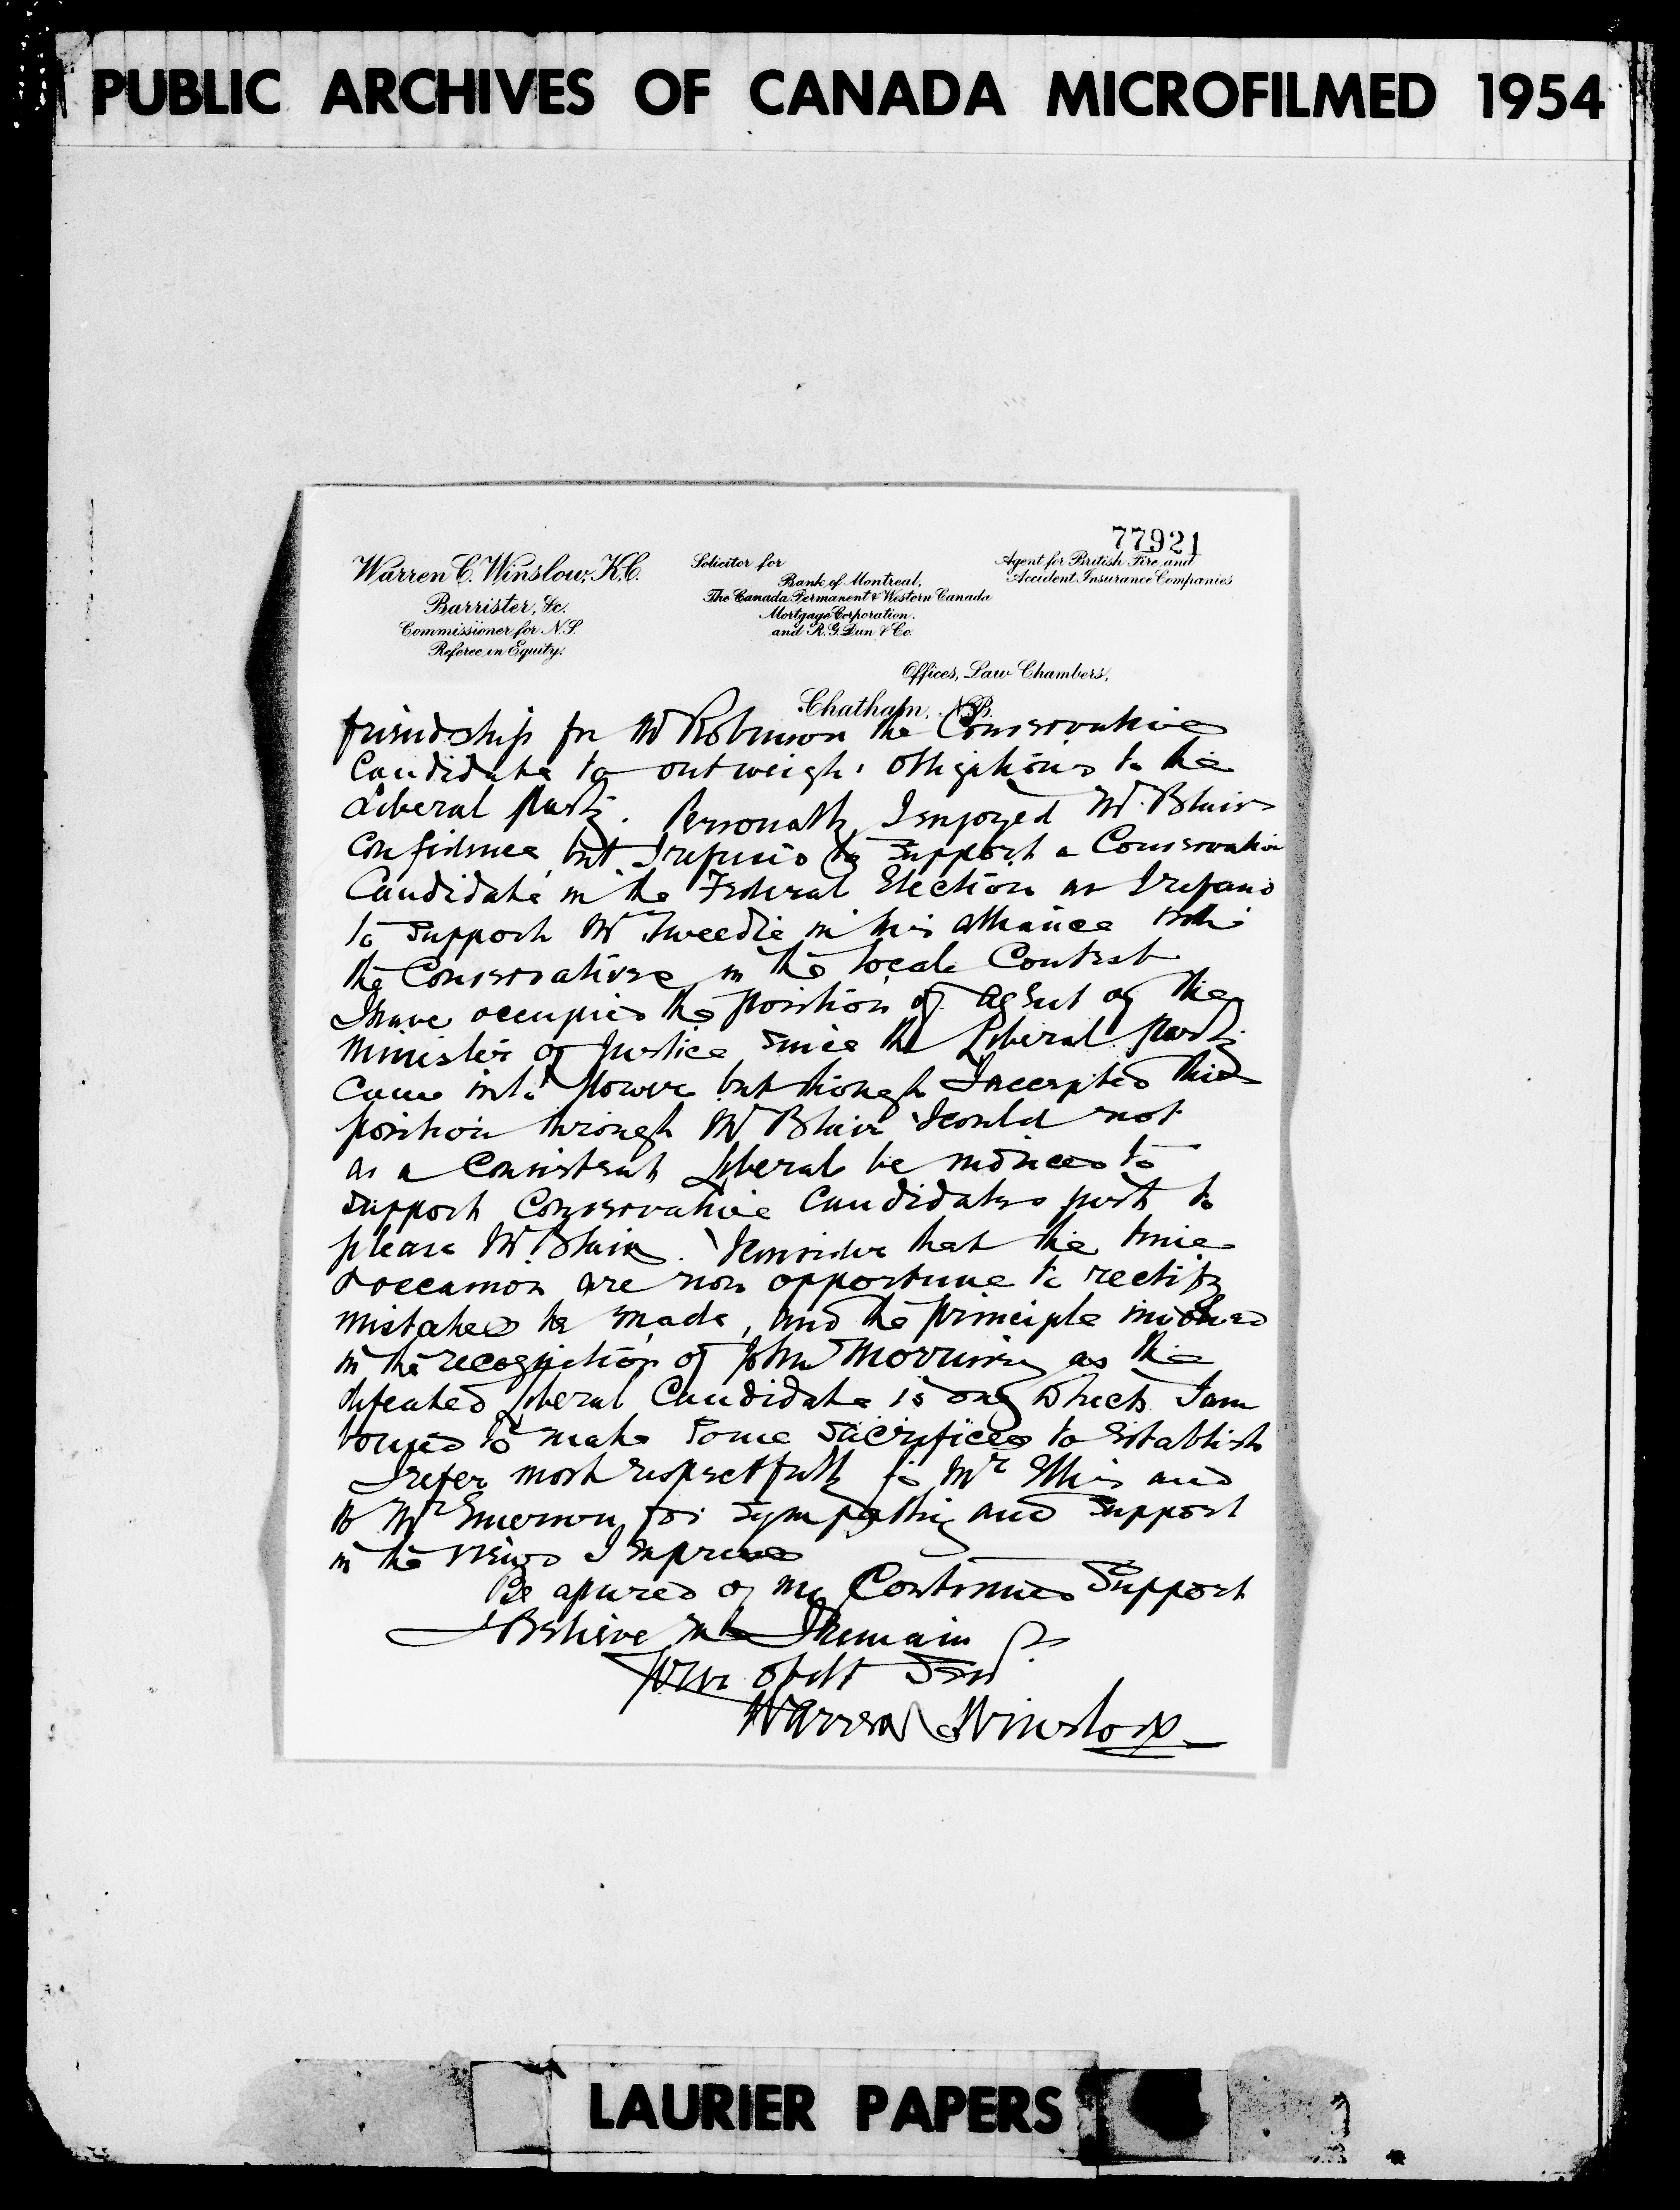 PUBLIC ARCHIVES OF CANADA MICROFILMED 1954
77921
Warren C. Winslow, K.C.
Barrister, &c.
Commissioner for N.S.
Referee in Equity.
Solicitor for
Bank of Montreal,
The Canada Permanent & Western Canada
Mortgage Corporation.
and R. G. Dun & Co.
Agent for British Fire and
Accident Insurance Companies
Offices, Law Chambers,
Chatham, N.B.
friendship for Mr Robinson the Conservative
Candidate to outweigh obligations to the
Liberal party. Personally I enjoyed Mr. Blairs
Confidence but I refused to support a Conservative
Candidate in the Federal Election as I refused
to support Mr Tweedie in his alliance with
the Conservatives in the local Contest
I have occupied the position of agent of the
Minister of Justice since the Liberal party
came into power but though I accepted this
position through Mr Blair I could not
as a Consistent Liberal be induced to
support Conservative Candidates just to
please Mr Blair. I consider that the time
& occasion are now opportune to rectify
mistakes he made, and the principle involved
in the recognition of John Morrissy as the
defeated Liberal Candidate is one which I am
bound to make some sacrifices to establish
I refer most respectfully to Mr Ellis and
to Mr Emerson for sympathy and support
in the views I express
Be assured of my Continued Support
& Believe me I remain
Your obdt Servt
Warren C Winslow
LAURIER PAPERS